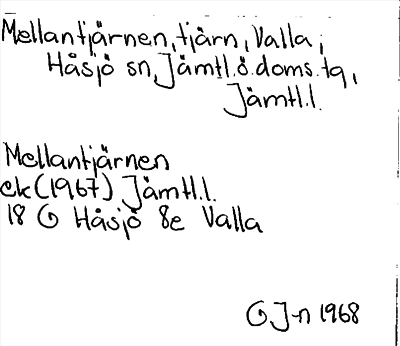 Mellantjärnen, tjärn, Valla,
Håsjö sn, Jämtl.ö.doms.tg,
Jämtl.l.
Mellantjärnen
ek (1967) Jämtl.l.
18 G Håsjö 8e Valla
G J-n 1968